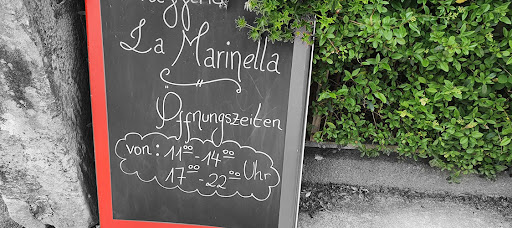 La Marinella
Öffnungszeiten
von: 11⁰⁰-14⁰⁰ Uhr
17⁰⁰-22⁰⁰